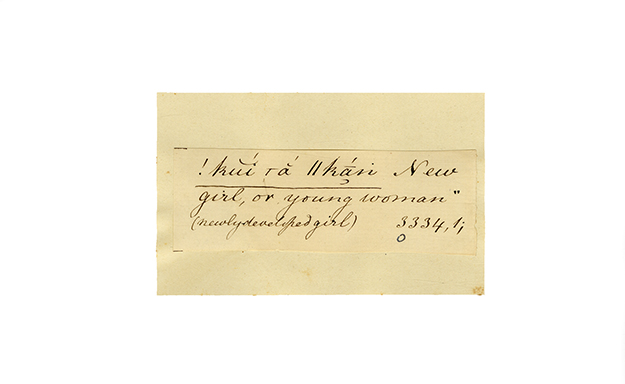 !kuí ɼá ǁká̱ri New
girl, or young woman"
(newly developed girl) 3334,1;
0